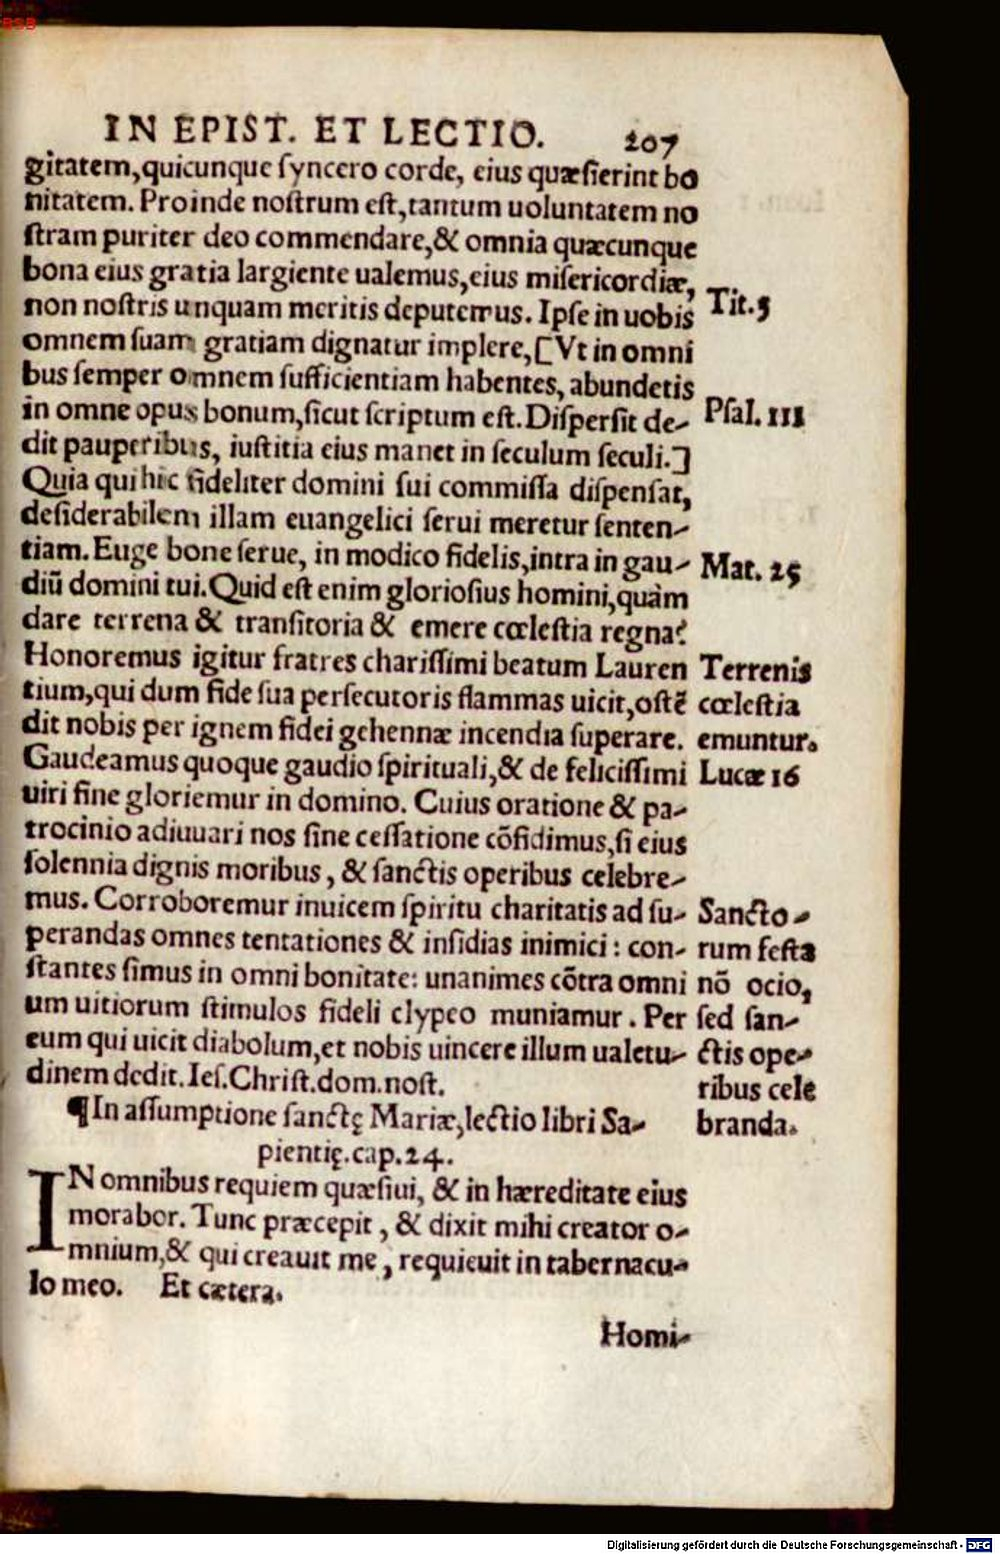 BSB
IN EPIST. ET LECTIO. 207
gitatem,quicunque ſyncero corde, eius quæſierint bo
nitatem. Proinde noſtrum eſt,tantum uoluntatem no
ſtram puriter deo commendare,& omnia quæcunque
bona eius gratia largiente ualemus,eius miſericordiæ,
non noſtris unquam meritis deputemus. Ipſe in uobis
Tit.3
omnem ſuam gratiam dignatur implere,[Vt in omni
bus ſemper omnem ſufficientiam habentes, abundetis
in omne opus bonum,ſicut ſcriptum eſt. Diſperſit de-
Pſal. 111
dit pauperibus, iuſtitia eius manet in ſeculum ſeculi.]
Quia qui hic fideliter domini ſui commiſſa diſpenſat,
deſiderabilem illam euangelici ſerui meretur ſenten-
tiam. Euge bone ſerue, in modico fidelis,intra in gau-
Mat. 25
diũ domini tui. Quid eſt enim glorioſius homini,quàm
dare terrena & tranſitoria & emere cœleſtia regna?
Honoremus igitur fratres chariſſimi beatum Lauren
Terrenis
tium,qui dum fide ſua perſecutoris flammas uicit,oſtẽ
cœleſtia
dit nobis per ignem fidei gehennæ incendia ſuperare.
emuntur.
Gaudeamus quoque gaudio ſpirituali,& de feliciſſimi
Lucæ 16
uiri fine gloriemur in domino. Cuius oratione & pa-
trocinio adiuuari nos ſine ceſſatione cõfidimus,ſi eius
ſolennia dignis moribus, & ſanctis operibus celebre-
mus. Corroboremur inuicem ſpiritu charitatis ad ſu-
Sancto-
perandas omnes tentationes & inſidias inimici: con-
rum feſta
ſtantes ſimus in omni bonitate: unanimes cõtra omni
nõ ocio,
um uitiorum ſtimulos fideli clypeo muniamur. Per
ſed ſan-
eum qui uicit diabolum,et nobis uincere illum ualetu-
ctis ope-
dinem dedit. Ieſ. Chriſt. dom. noſt.
ribus cele
¶In aſſumptione ſanctę Mariæ,lectio libri Sa-
branda.
pientię.cap.24.
IN omnibus requiem quæſiui, & in hæreditate eius
morabor. Tunc præcepit, & dixit mihi creator o-
mnium,& qui creauit me, requieuit in tabernacu-
lo meo. Et cætera.
Homi-
Digitalisierung gefördert durch die Deutsche Forschungsgemeinschaft - DFG